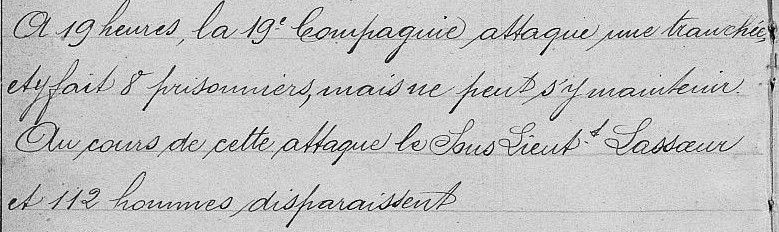 A 19 heures, la 19e Compagnie attaque une tranchée,
et y fait 8 prisonniers, mais ne peut s'y maintenir.
Au cours de cette attaque le Sous Lieut-t Lassœur
et 112 hommes disparaissent